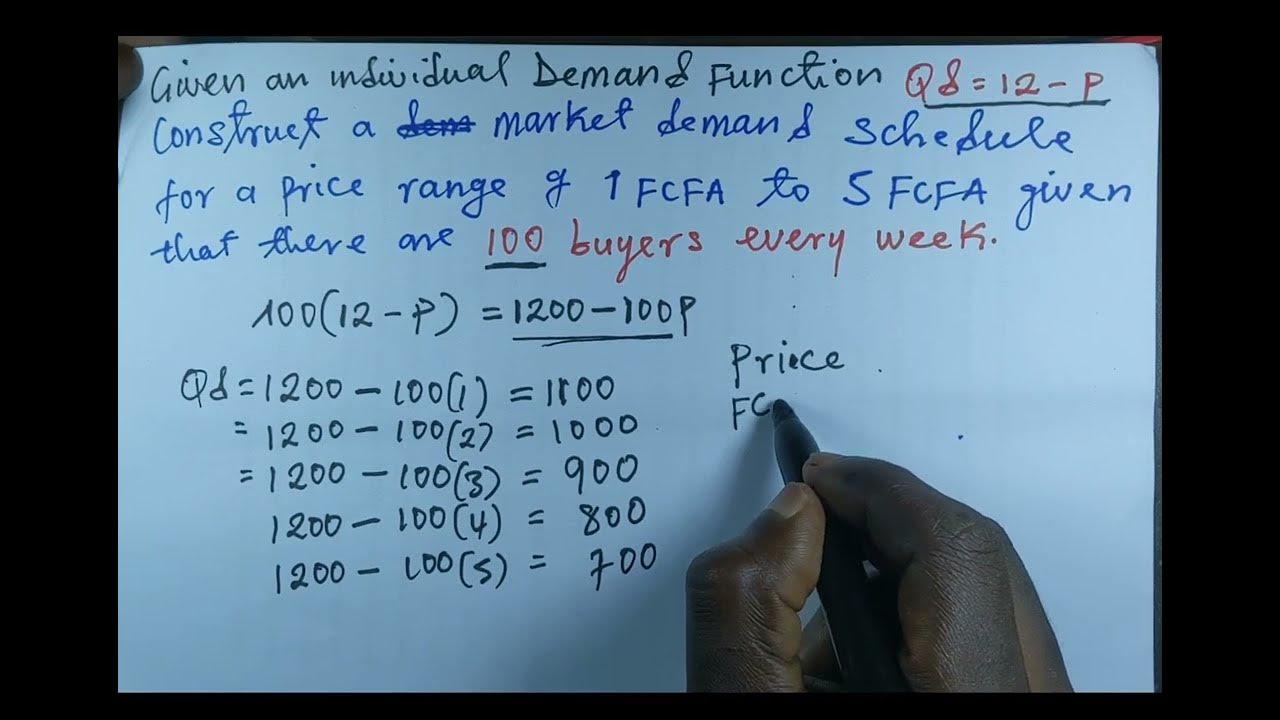 Given an individual Demand Function Qd = 12 - P
Construct a market demand schedule
for a price range of 1 FCFA to 5 FCFA given
that there are 100 buyers every week.
100(12 - P) = 1200 - 100P
Qd = 1200 - 100(1) = 1100
= 1200 - 100(2) = 1000
= 1200 - 100(3) = 900
1200 - 100(4) = 800
1200 - 100(5) = 700
Price
FC